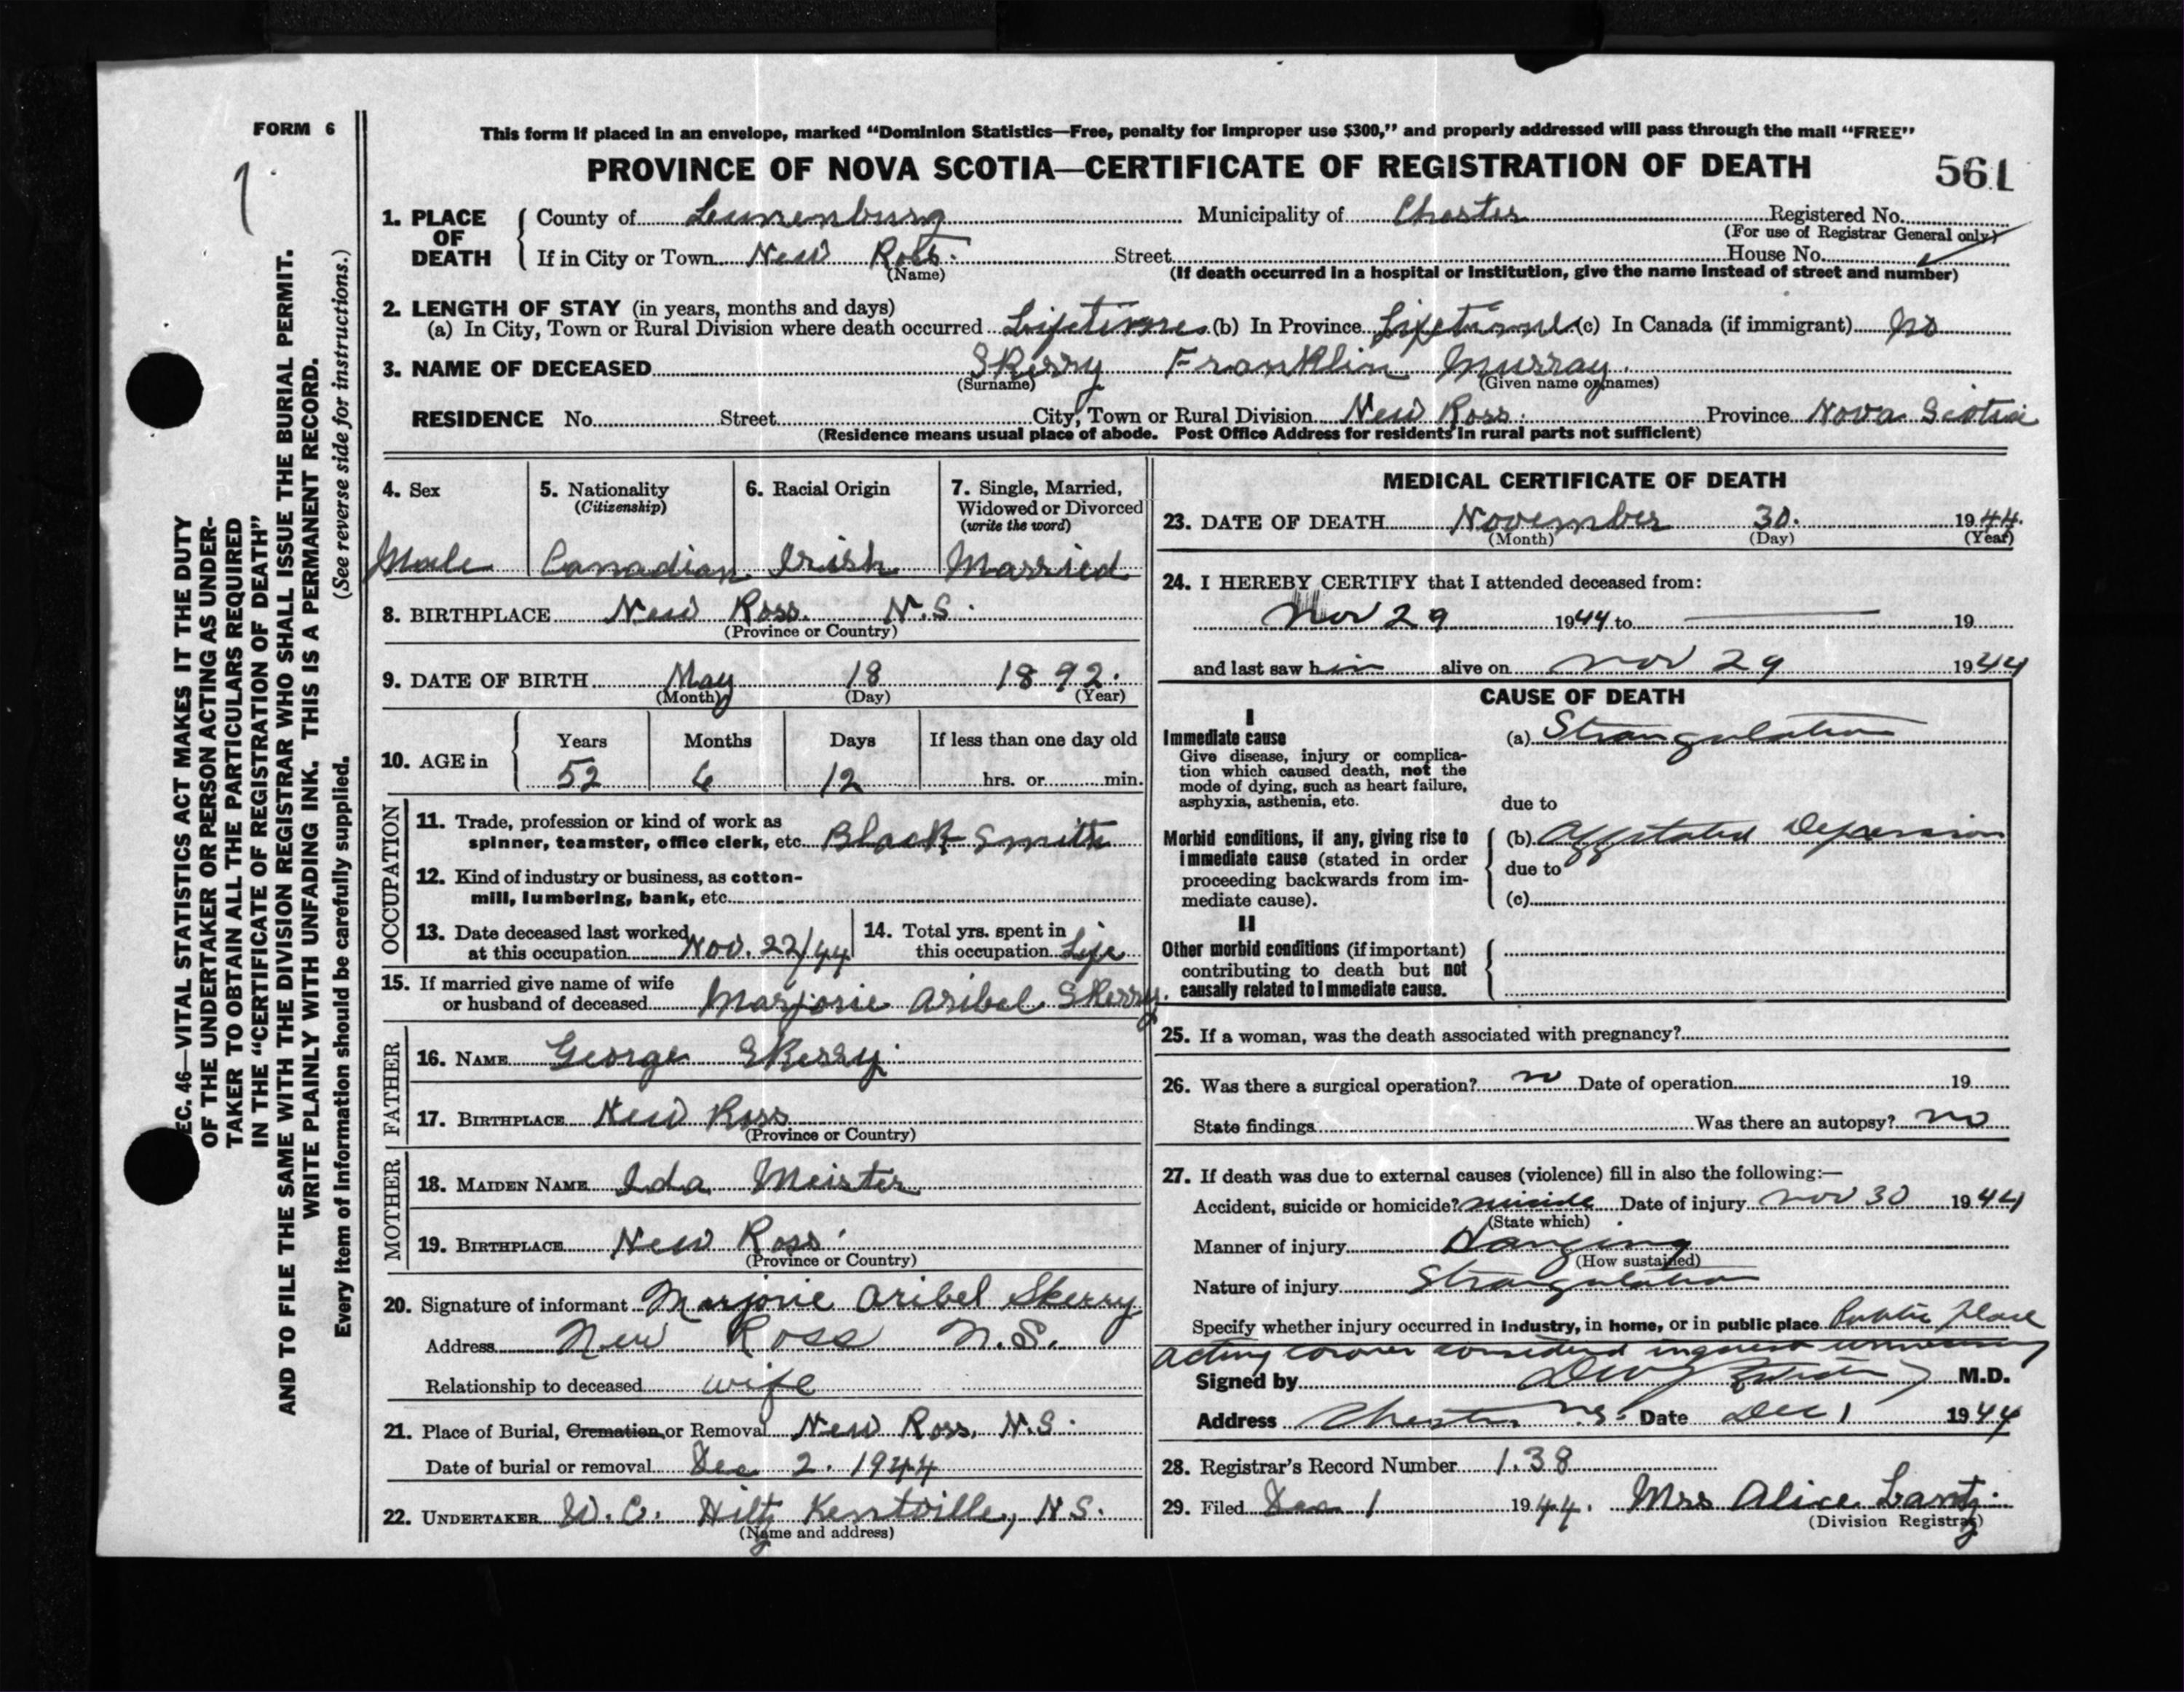 FORM 6
This form if placed in an envelope, marked "Dominion Statistics—Free, penalty for improper use $300," and properly addressed will pass through the mail "FREE"
PROVINCE OF NOVA SCOTIA—CERTIFICATE OF REGISTRATION OF DEATH
561
1. PLACE OF DEATH County of Lunenburg Municipality of Chester Registered No.
(For use of Registrar General only)
If in City or Town New Ross. Street House No.
(Name) (If death occurred in a hospital or institution, give the name instead of street and number)
2. LENGTH OF STAY (in years, months and days)
(a) In City, Town or Rural Division where death occurred Lifetime (b) In Province Lifetime (c) In Canada (if immigrant) No
3. NAME OF DECEASED Skerry Franklin Murray.
(Surname) (Given name or names)
RESIDENCE No. Street City, Town or Rural Division New Ross. Province Nova Scotia
(Residence means usual place of abode. Post Office Address for residents in rural parts not sufficient)
4. Sex
Male
5. Nationality
(Citizenship)
Canadian
6. Racial Origin
Irish
7. Single, Married,
Widowed or Divorced
(write the word)
Married
8. BIRTHPLACE New Ross. N.S.
(Province or Country)
9. DATE OF BIRTH May 18 1892.
(Month) (Day) (Year)
10. AGE in Years Months Days If less than one day old
52 6 12 hrs. or min.
OCCUPATION
11. Trade, profession or kind of work as
spinner, teamster, office clerk, etc. Black Smith
12. Kind of industry or business, as cotton-
mill, lumbering, bank, etc.
13. Date deceased last worked
at this occupation Nov. 22/44
14. Total yrs. spent in
this occupation Life
15. If married give name of wife
or husband of deceased Marjorie Aribel Skerry.
FATHER
16. NAME George Skerry.
17. BIRTHPLACE New Ross
(Province or Country)
MOTHER
18. MAIDEN NAME Ida Meister
19. BIRTHPLACE New Ross.
(Province or Country)
20. Signature of informant Marjorie Aribel Skerry
Address New Ross N.S.
Relationship to deceased wife
21. Place of Burial, Cremation, or Removal New Ross, N.S.
Date of burial or removal Dec 2. 1944
22. UNDERTAKER W. C. Hiltz Kentville, N.S.
(Name and address)
MEDICAL CERTIFICATE OF DEATH
23. DATE OF DEATH November 30. 1944.
(Month) (Day) (Year)
24. I HEREBY CERTIFY that I attended deceased from:
Nov 29 1944 to 19
and last saw him alive on Nov 29 1944
CAUSE OF DEATH
I
Immediate cause
Give disease, injury or complica-
tion which caused death, not the
mode of dying, such as heart failure,
asphyxia, asthenia, etc.
(a) Strangulation
due to
Morbid conditions, if any, giving rise to
immediate cause (stated in order
proceeding backwards from im-
mediate cause).
(b) Aggitated Depression
due to
(c)
II
Other morbid conditions (if important)
contributing to death but not
causally related to immediate cause.
25. If a woman, was the death associated with pregnancy?
26. Was there a surgical operation? no Date of operation 19
State findings Was there an autopsy? no
27. If death was due to external causes (violence) fill in also the following:—
Accident, suicide or homicide? suicide Date of injury Nov 30 1944
(State which)
Manner of injury Hanging
(How sustained)
Nature of injury Strangulation
Specify whether injury occurred in industry, in home, or in public place Public place
Acting coroner considered inquest unnecessary
Signed by M.D.
Address Chester N.S. Date Dec 1 1944
28. Registrar's Record Number 138
29. Filed Dec 1 1944. Mrs Alice Lantz.
(Division Registrar)
EC. 46—VITAL STATISTICS ACT MAKES IT THE DUTY
OF THE UNDERTAKER OR PERSON ACTING AS UNDER-
TAKER TO OBTAIN ALL THE PARTICULARS REQUIRED
IN THE "CERTIFICATE OF REGISTRATION OF DEATH"
AND TO FILE THE SAME WITH THE DIVISION REGISTRAR WHO SHALL ISSUE THE BURIAL PERMIT.
WRITE PLAINLY WITH UNFADING INK. THIS IS A PERMANENT RECORD.
Every item of information should be carefully supplied. (See reverse side for instructions.)